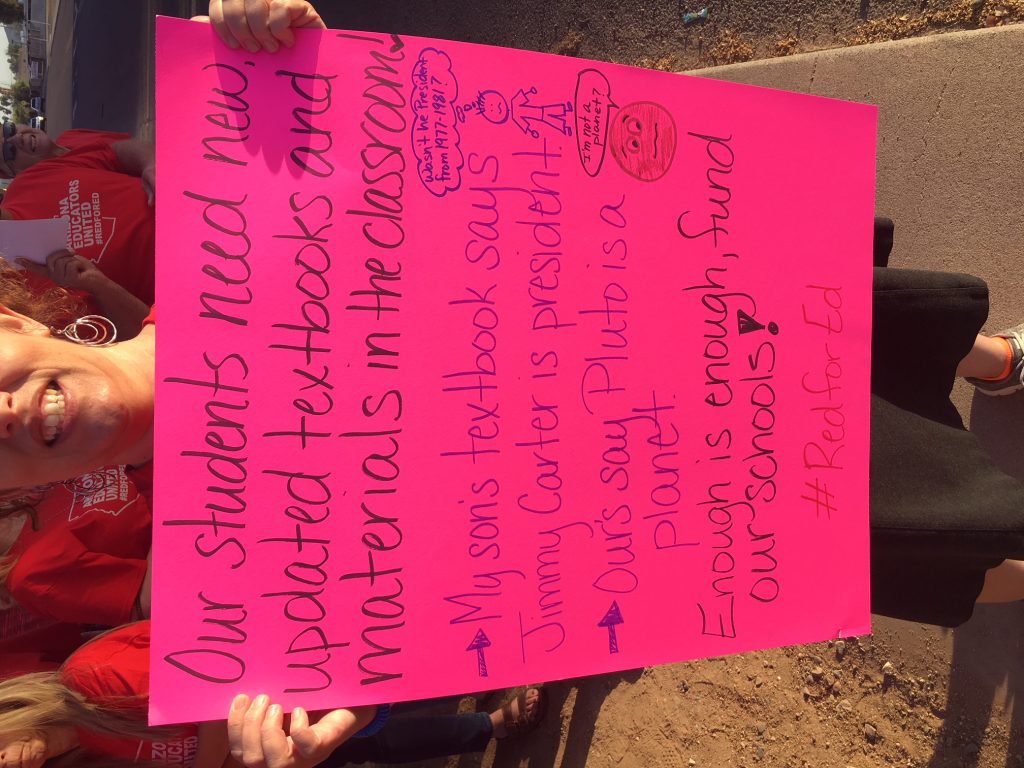 Our students need new,
updated textbooks and
materials in the classroom!
Wasn't he President
from 1977-1981?
My son's textbook says
Jimmy Carter is president.
I'm not a
planet?
Our's say Pluto is a
planet.
Enough is enough, fund
our schools!
#RedforEd
ARIZONA
EDUCATORS
UNITED
#REDFORED
UNITED